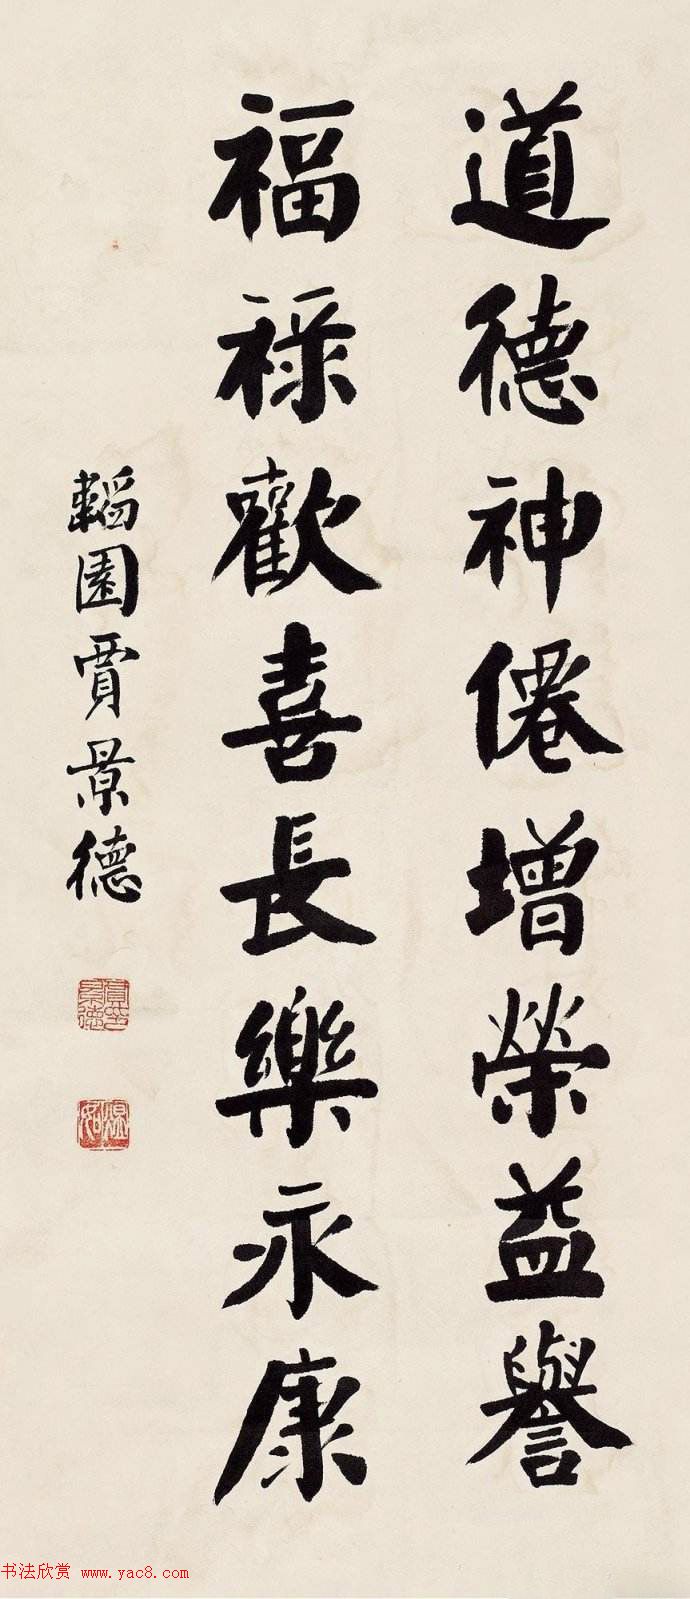 道德神僊增榮益譽
福禄歡喜長樂永康
韜園賈景德
書法欣赏 www.yac8.com